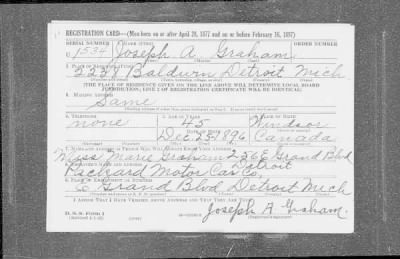 REGISTRATION CARD—(Men born on or after April 28, 1877 and on or before February 16, 1897)
SERIAL NUMBER 1. NAME (Print) ORDER NUMBER
1534 Joseph A. Graham
2. PLACE OF RESIDENCE (Print)
2237 Baldwin Detroit Mich
(THE PLACE OF RESIDENCE GIVEN ON THE LINE ABOVE WILL DETERMINE LOCAL BOARD
JURISDICTION; LINE 2 OF REGISTRATION CERTIFICATE WILL BE IDENTICAL)
3. MAILING ADDRESS
Same
4. TELEPHONE 5. AGE IN YEARS 6. PLACE OF BIRTH
none 45 Windsor
DATE OF BIRTH
Dec 25 1896 Canada
7. NAME AND ADDRESS OF PERSON WHO WILL ALWAYS KNOW YOUR ADDRESS
Miss Marie Graham 256 E Grand Blvd
Detroit
8. EMPLOYER'S NAME AND ADDRESS
Packard Motor Car Co,
9. PLACE OF EMPLOYMENT OR BUSINESS
E Grand Blvd Detroit Mich
I AFFIRM THAT I HAVE VERIFIED ABOVE ANSWERS AND THAT THEY ARE TRUE.
D. S. S. Form 1
Joseph A Graham.